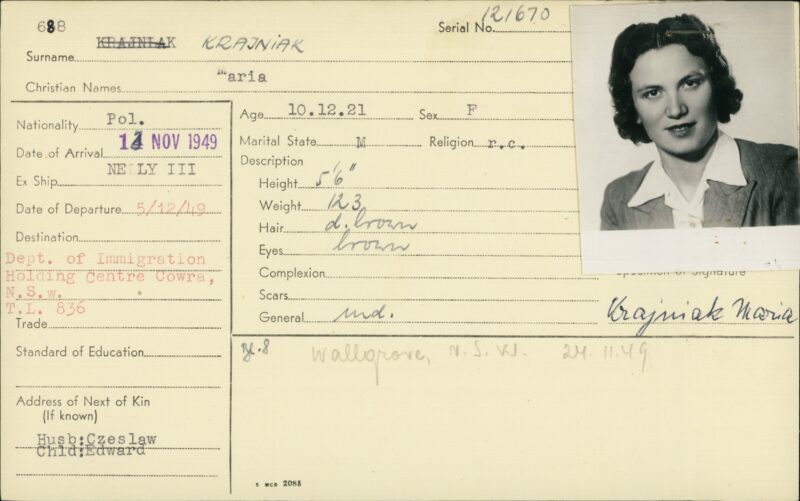 688
Serial No. 121670
Surname KRAJNIAK KRAJNIAK
Christian Names Maria
Nationality Pol.
Date of Arrival NOV 1949
Ex Ship NELLY III
Date of Departure 5/12/49
Destination
Dept. of Immigration
Holding Centre Cowra,
N.S.w.
T.L. 836
Trade
Standard of Education
Address of Next of Kin
(If known)
Husb:Czeslaw
Chld:Edward
Age 10.12.21 Sex F
Marital State M Religion r.c.
Description
Height 5'6"
Weight 123
Hair d. brown
Eyes brown
Complexion
Scars
General md.
Specimen of Signature
Krajniak Maria
Bl. 8 Wallgrove, N.S.W. 24.11.49
5 MCD 2085